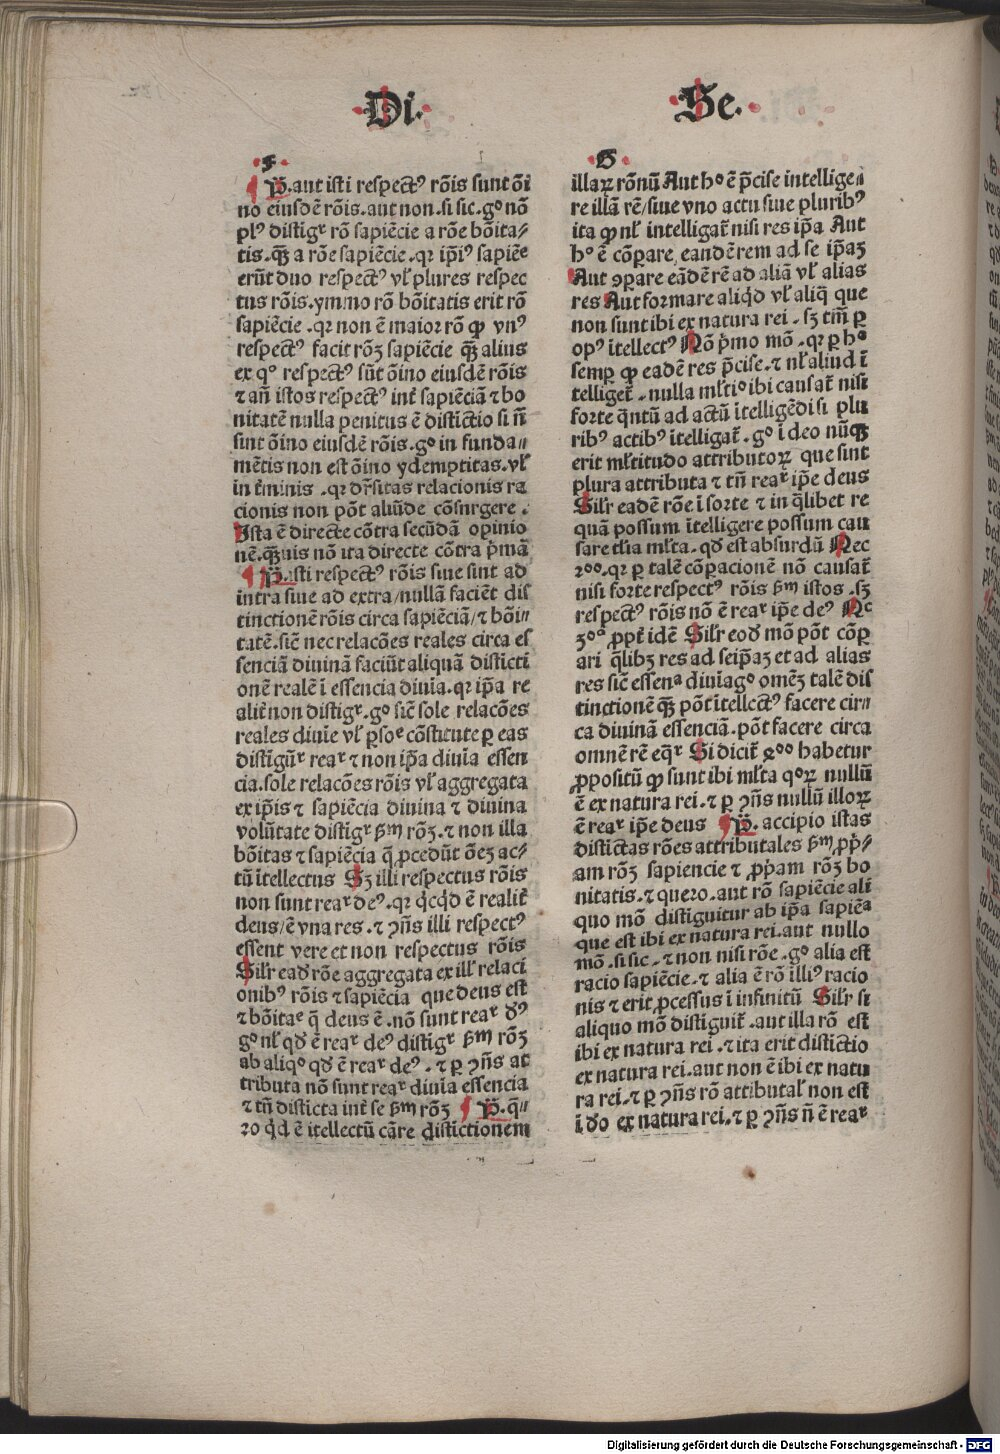 Di.
Se.
F
P̄. aut isti respectꝰ rōis sunt oī
no eiusdē rōis. aut non. si sic. gͦ nō
plꝰ distigʳ rō sapiēcie a rōe bōita/
tis. qꝫ a rōe sapiēcie. qꝛ ip̄iꝰ sapiēe
erūt duo respectꝰ vl̄ plures respec
tus rōis. ymmo rō bōitatis erit rō
sapiēcie. qꝛ non ē maior rō ꝙ vnꝰ
respectꝰ facit rōꝫ sapiēcie qꝫ alius
ex qͦ respectꝰ sūt oīno eiusdē rōis
⁊ an̄ istos respectꝰ int̄ sapiēciā ⁊ bo
nitatē nulla penitus ē distictio si n̄
sint oīno eiusdē rōis. gͦ in funda//
mētis non est oīno ydemptitas. vl̄
in t̄minis. qꝛ dr̄sitas relacionis ra
cionis non pōt aliūde cōsnrgere.
Ista ē directe cōtra secūdā opinio
nē. qꝫuis nō ita directe cōtra p̄mā
P̄. isti respectꝰ rōis siue sint ad
intra siue ad extra/nullā faciēt dis
tinctionē rōis circa sapiēciā/⁊ bōi//
tatē. sic̄ nec relacōes reales circa es
senciā diuinā faciūt aliquā disticti
onē realē ī essencia diuīa. qꝛ ip̄a re
alit̄ non distigʳ. gͦ sic̄ sole relacōes
reales diuīe vl̄ ꝑsoᵉ cōstitute ꝑ eas
distīgūʳ reaʳ ⁊ non ip̄a diuīa essen
cia. sole relacōes rōis vl̄ aggregata
ex ip̄is ⁊ sapiēcia diuina ⁊ diuina
volūtate distigʳ ẜm rōꝫ. ⁊ non illa
bōitas ⁊ sapiēcia q̄ ꝓcedūt oēꝫ ac/
tū ītellectus Sꝫ illi respectus rōis
non sunt reaʳ deꝰ. qꝛ qͥcqͥd ē realit̄
deus/ē vna res. ⁊ ꝯn̄s illi respectꝰ
essent vere et non respectus rōis
Silr̄ eadē rōe aggregata ex ill̄ relaci
onibꝰ rōis ⁊ sapiēcia que deus est
⁊ bōitaᵉ q̄ deus ē. nō sunt reaʳ dꝰ
gͦ nl̄ qd̄ ē reaʳ deꝰ distigʳ ẜm rōꝫ
ab aliqͦ qd̄ ē reaʳ deꝰ. ⁊ ꝑ ꝯn̄s at
tributa nō sunt reaʳ diuīa essencia
⁊ tn̄ disticta int̄ se ẜm rōꝫ P̄. q̄//
ro qͥd ē ītellectū cāre distictionem
G
illaꝝ rōnū Aut hͦ ē p̄cise intellige//
re illā rē/siue vno actu siue pluribꝰ
ita ꝙ nl̄ intelligat̄ nisi res ip̄a Aut
hͦ ē cōpare eandē rem ad se ip̄aꝫ
Aut ꝯpare eādē rē ad aliā vl̄ alias
res Aut formare aliqͥd vl̄ aliq̄ que
non sunt ibi ex natura rei. sꝫ tm̄ ꝑ
opꝰ ītellectꝰ Nō p̄mo mō. qꝛ ꝑ hͦ
semꝑ ꝙ eadē res p̄cise. ⁊ nl̄ aliud ī
telliget̄. nulla ml̄tiͦ ibi causat̄ nisi
forte q̄ntū ad actū ītelligēdi si plu
ribꝰ actibꝰ ītelligat̄. gͦ ī deo nūqꝫ
erit ml̄titudo attributoꝝ que sint
plura attributa ⁊ tn̄ reaʳ ip̄e deus
Silr̄ eadē rōe ī sorte ⁊ in q̄libet re
quā possum ītelligere possum cau
sare tl̄ia ml̄ta. qd̄ est absurdū Nec
2ͦͦ. qꝛ ꝑ talē cōpacionē nō causat̄
nisi forte respectꝰ rōis ẜm istos. sꝫ
respectꝰ rōis nō ē reaʳ ip̄e deꝰ Nͨ
3ͦ ꝓpt̄ idē Silr̄ eodē mō pōt cōꝑ
ari q̄libꝫ res ad seip̄aꝫ et ad alias
res sic̄ essenᵃ diuīa gͦ omēꝫ talē dis
tinctionē qꝫ pōt ītellectꝰ facere cir//
ca diuinā essenciā. pōt facere circa
omnē rē eqʳ Si dicit̄ qͦͦ habetur
ꝓpositū ꝙ sunt ibi ml̄ta qͦꝝ nullū
ē ex natura rei. ⁊ ꝑ ꝯn̄s nullū illoꝝ
ē reaʳ ip̄e deus P̄. accipio istas
distictas rōes attributales ẜm ꝓp̄/
am rōꝫ sapiencie ⁊ ꝓp̄am rōꝫ bo
nitatis. ⁊ quero. aut rō sapiēcie ali
quo mō distiguitur ab ip̄a sapiēᵃ
que est ibi ex natura rei. aut nullo
mō. si sic. ⁊ non nisi rōe. gͦ alia est
racio sapiēcie. ⁊ alia ē rō illiꝰ racio
nis ⁊ erit ꝓcessus ī infinitū Silr̄ si
aliquo mō distiguit̄. aut illa rō est
ibi ex natura rei. ⁊ ita erit distictio
ex natura rei. aut non ē ibi ex natu
ra rei. ⁊ ꝑ ꝯn̄s rō attibutal̄ non est
ī do ex natura rei. ⁊ ꝑ ꝯn̄s n̄ ē reaʳ
Digitalisierung gefördert durch die Deutsche Forschungsgemeinschaft - DFG